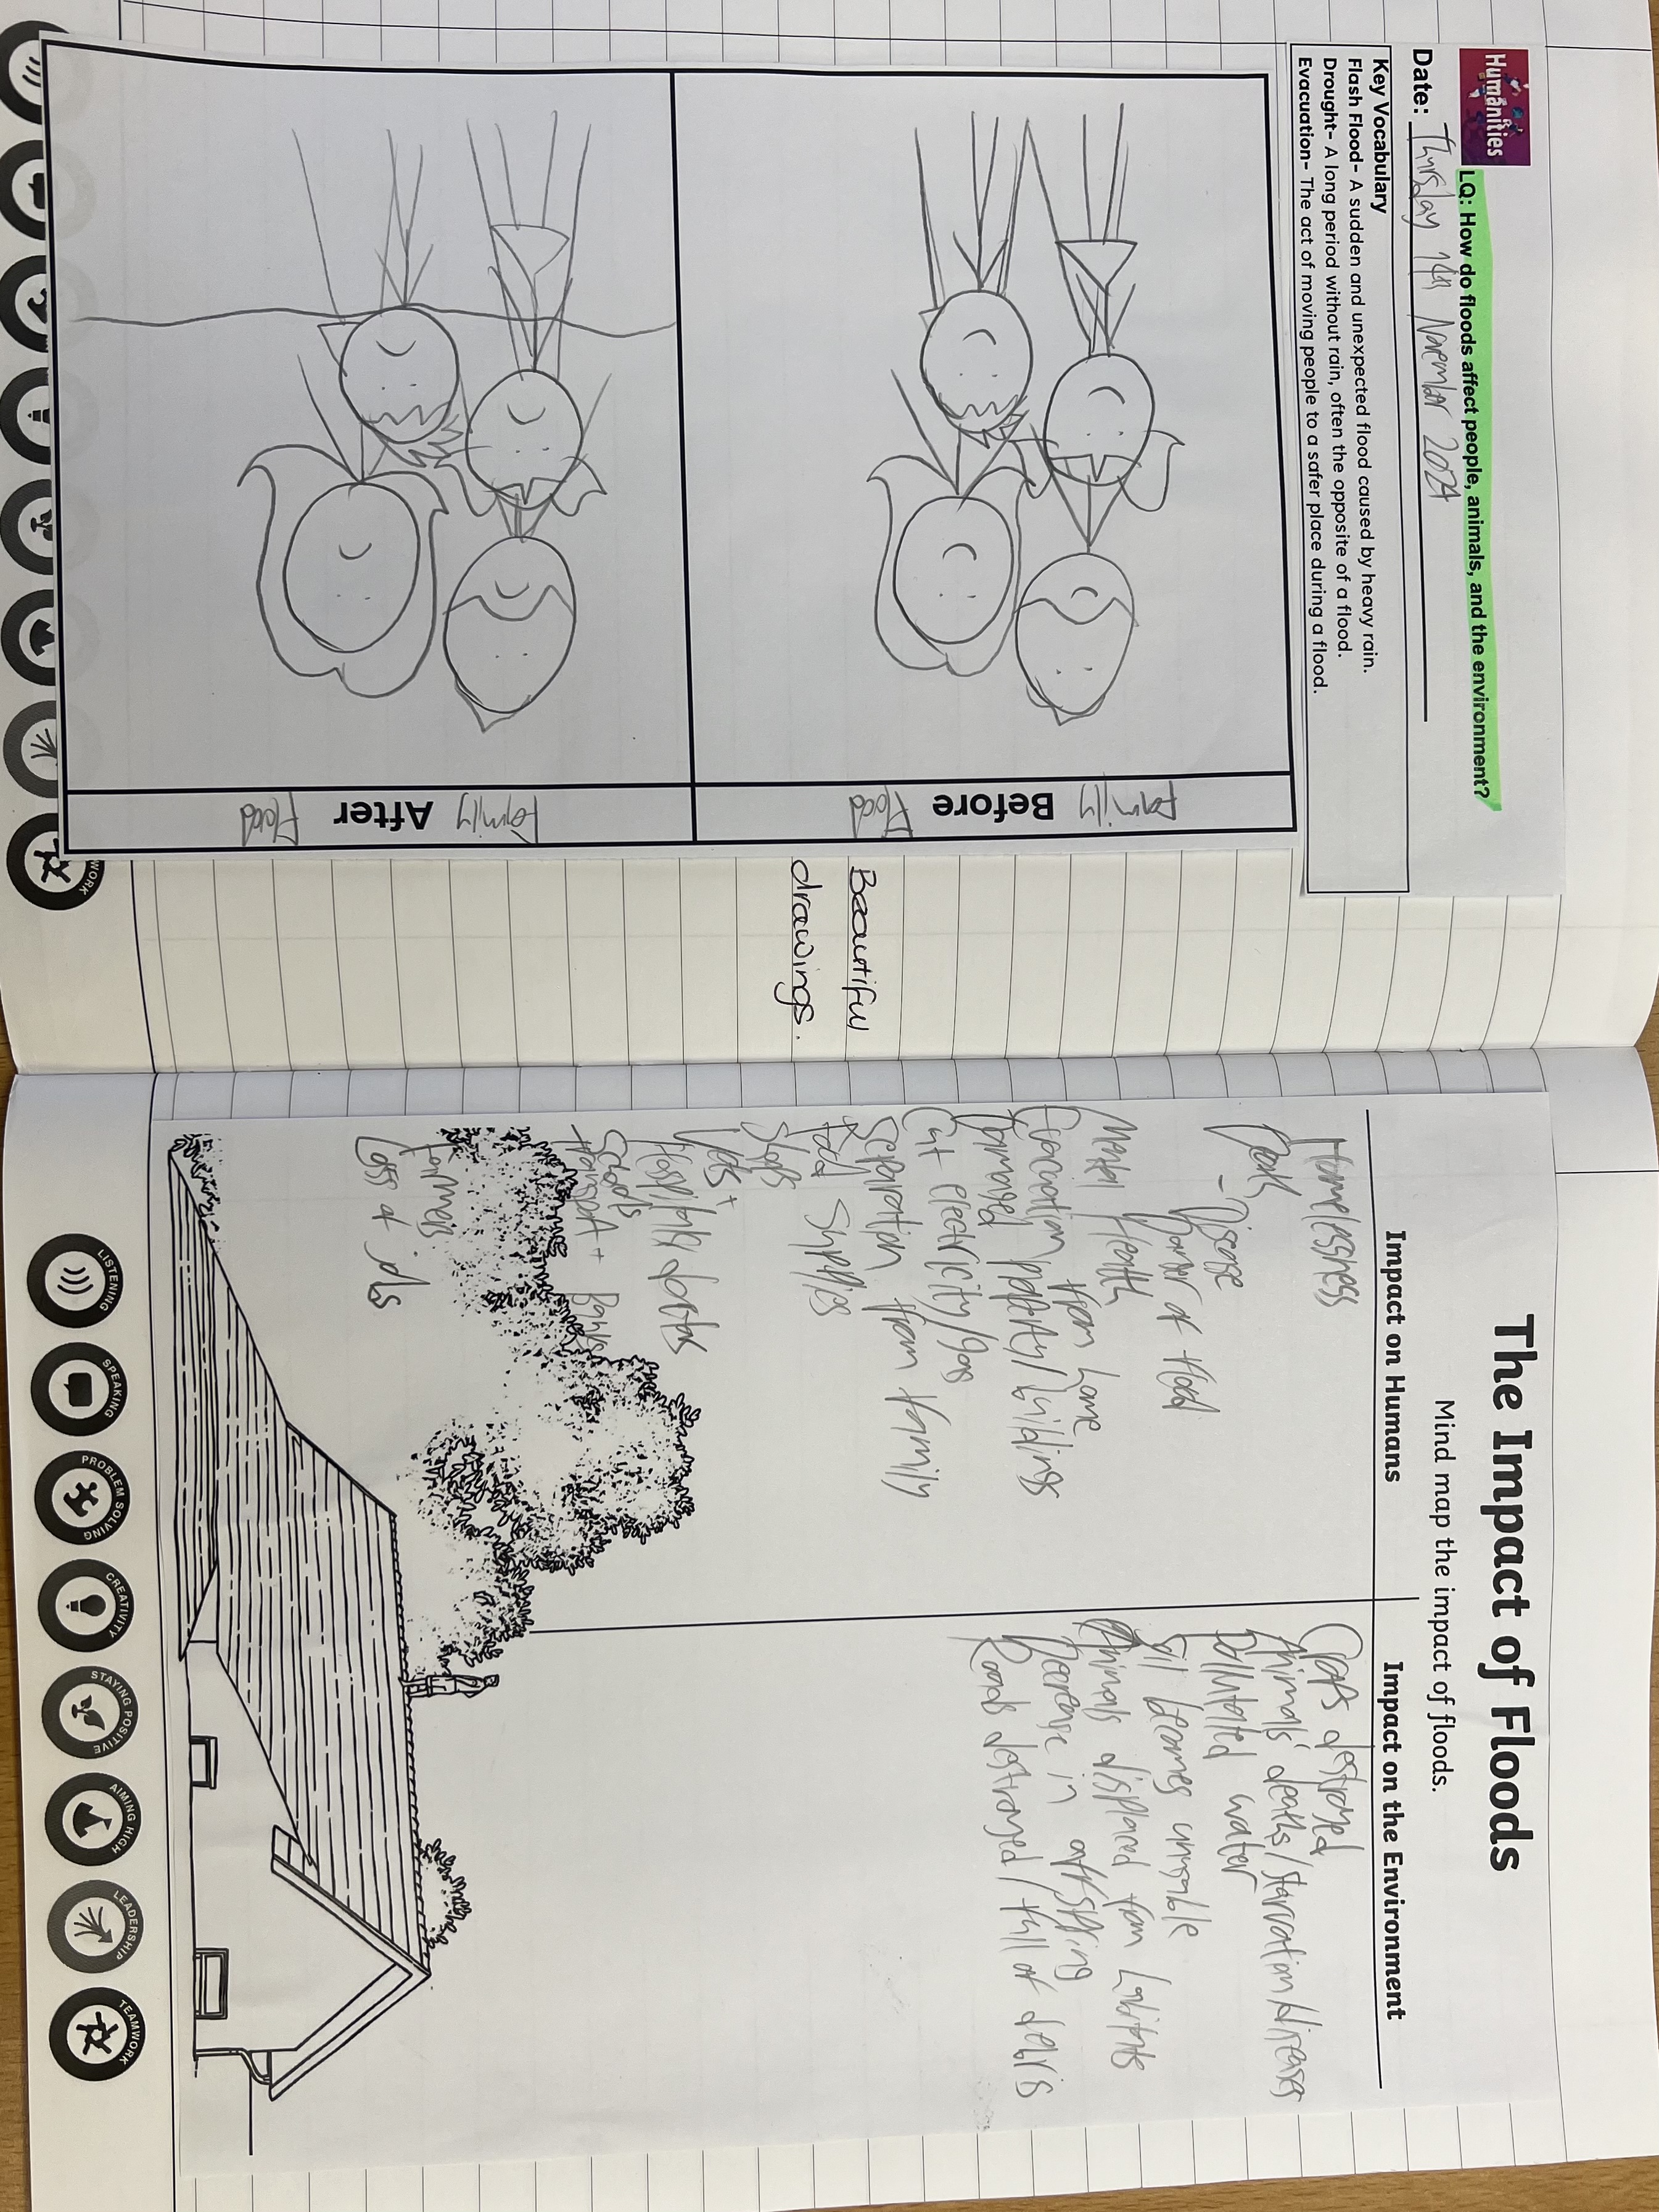 Humanities
LQ: How do floods affect people, animals, and the environment?
Date: Thursday 14th November 2024
Key Vocabulary
Flash Flood- A sudden and unexpected flood caused by heavy rain.
Drought- A long period without rain, often the opposite of a flood.
Evacuation- The act of moving people to a safer place during a flood.
Family
Before
Flood
Family
After
Flood
Beautiful
drawings.
WORK
The Impact of Floods
Mind map the impact of floods.
Impact on Humans
Homelessness
Death - Disease
Danger of flood
Mental Health
Evacuation from home
Damaged property/buildings
Cut electricity/gas
Separation from family
Food supplies
Shops
Vets +
Hospitals/doctors
Schools
transport + Banks
Farmers
Loss of jobs
Impact on the Environment
Crops destroyed
Animals' deaths/starvation/diseases
Pollutated water
Soil becomes unusable
Animals displaced from habitats
Decrease in offspring
Roads destroyed/full of debris
LISTENING
SPEAKING
PROBLEM SOLVING
CREATIVITY
STAYING POSITIVE
AIMING HIGH
LEADERSHIP
TEAMWORK